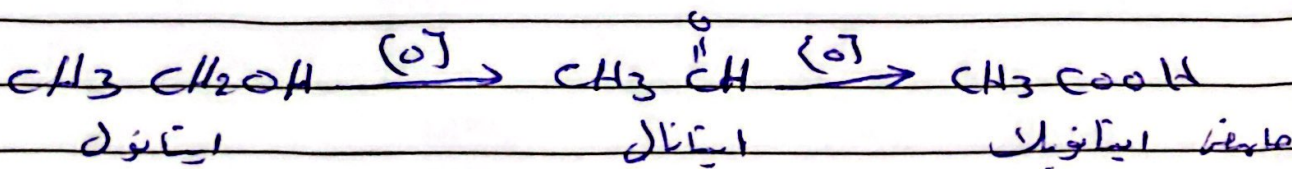 O
CH3 CH2OH [O] → CH3 CH [O] → CH3 COOH
ايتانول ايتانال حامض ايتانويك